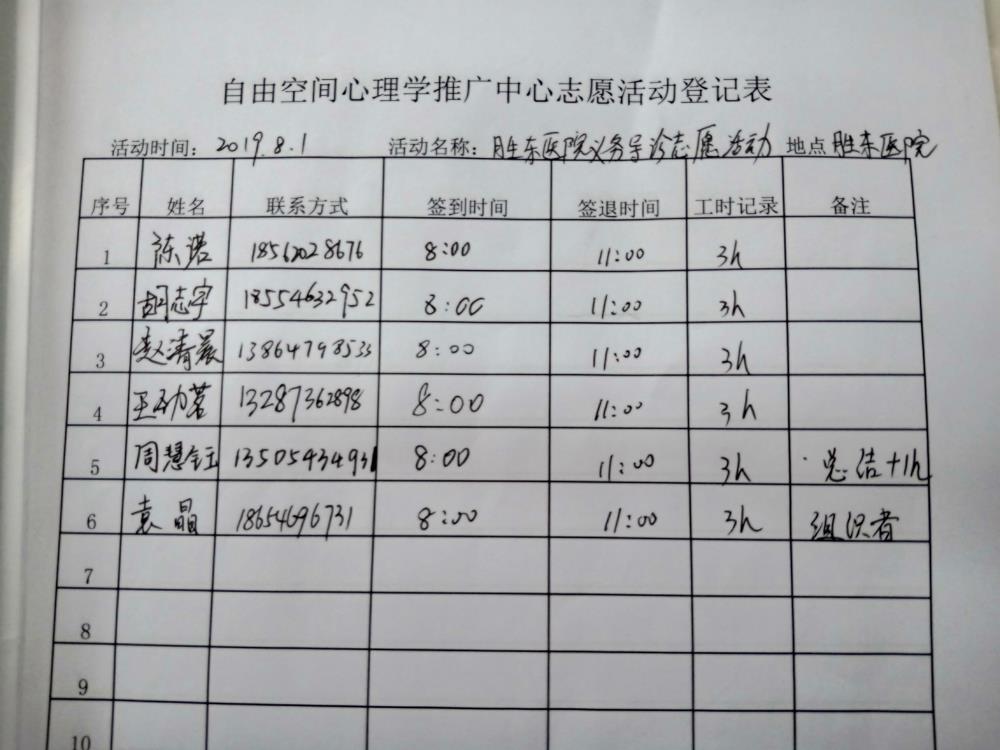 自由空间心理学推广中心志愿活动登记表
活动时间：2019.8.1 活动名称：胜东医院义务导诊志愿活动 地点 胜东医院
序号 姓名 联系方式 签到时间 签退时间 工时记录 备注
1 陈诺 18562028676 8:00 11:00 3h
2 胡志宇 18554632952 8:00 11:00 3h
3 赵清晨 13864798533 8:00 11:00 3h
4 王劲茗 13287362898 8:00 11:00 3h
5 周慧钰 13505434931 8:00 11:00 3h 总结+1h
6 袁晶 18654696731 8:00 11:00 3h 组织者
7
8
9
10